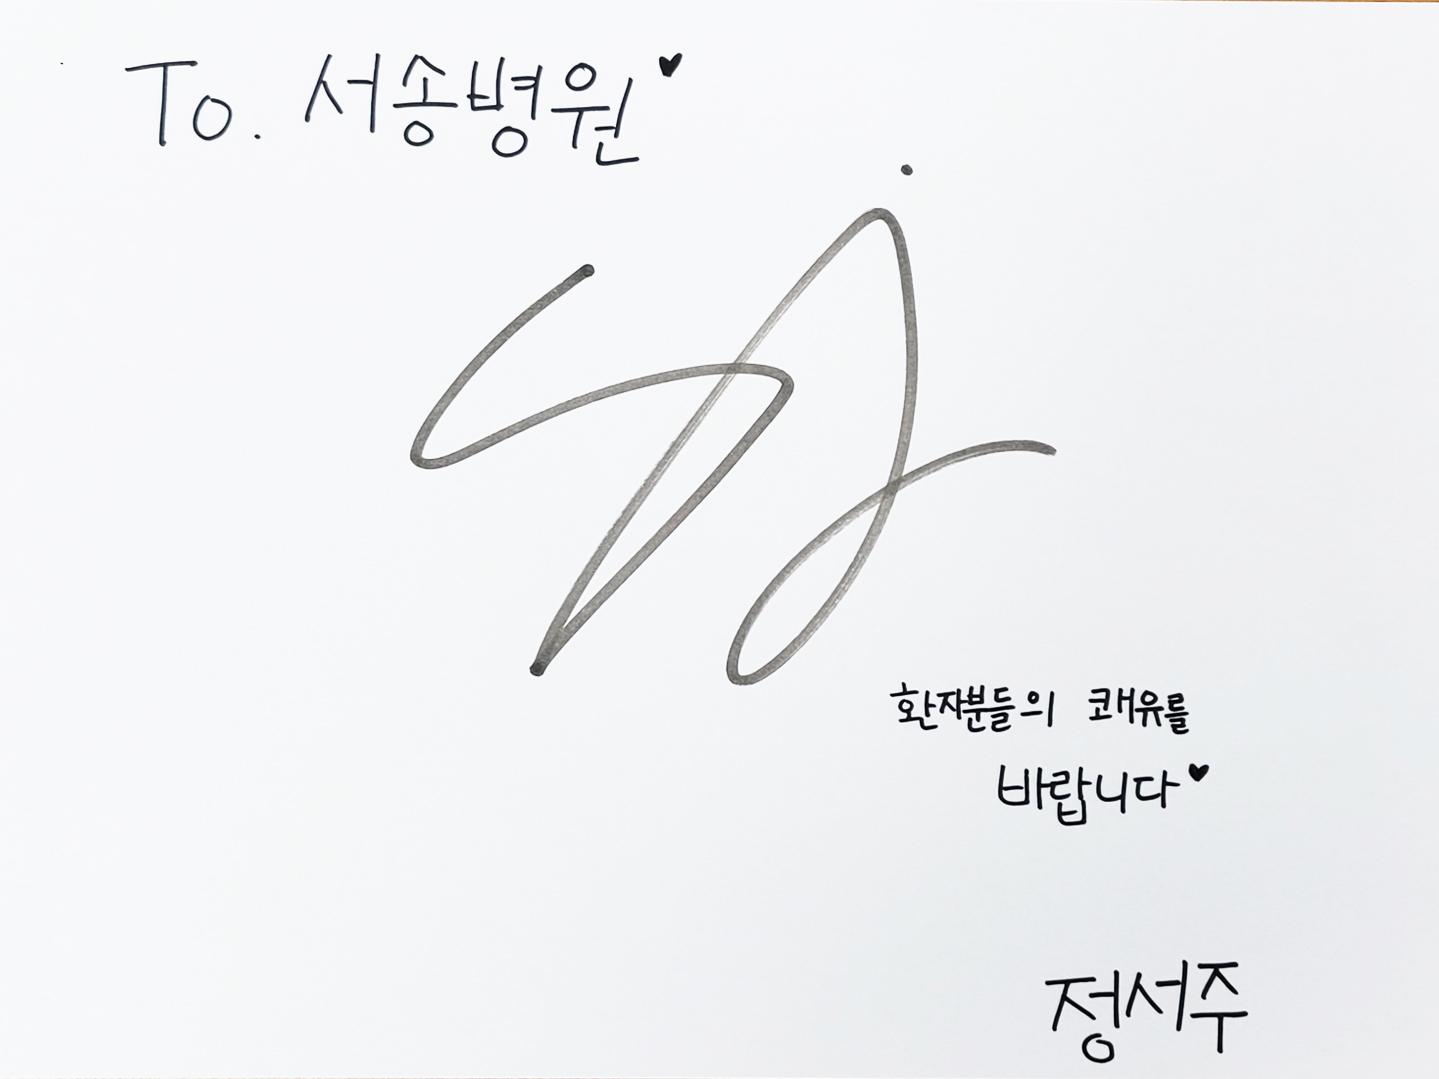 To. 서송병원♥
환자분들의 쾌유를
바랍니다♥
정서주